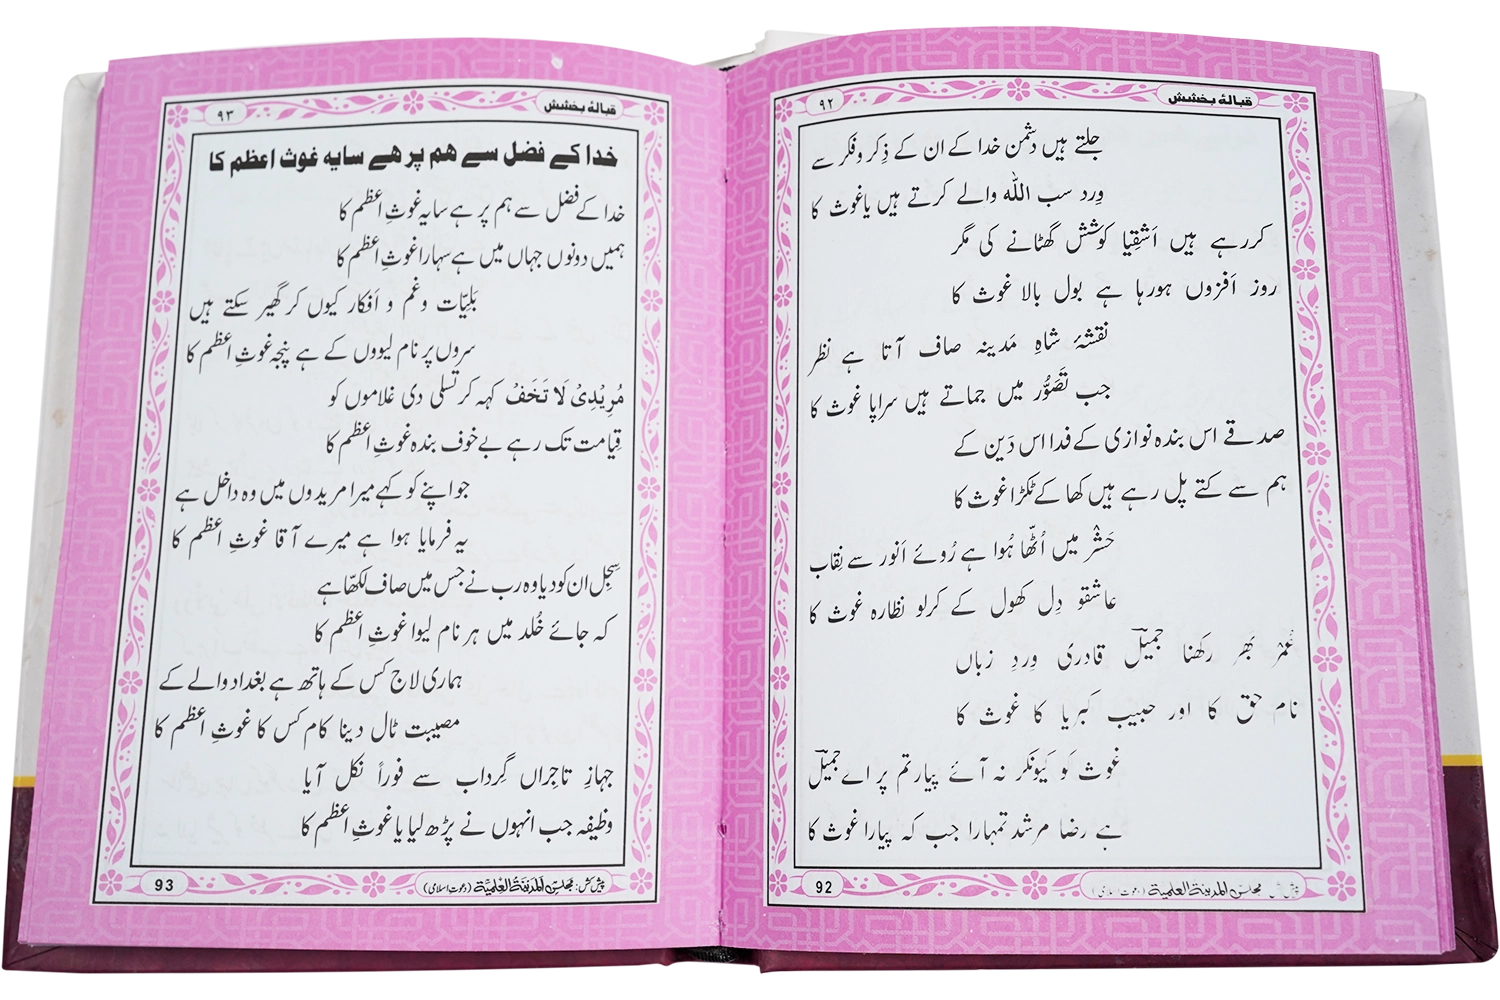 قبالۂ بخشش
۹۲
جلتے ہیں دشمن خدا کے ان کے ذِکر و فکر سے
وِرد سب اللّٰہ والے کرتے ہیں یاغوث کا
کررہے ہیں اَشقِیا کوشش گھٹانے کی مگر
روز اَفزوں ہورہا ہے بول بالا غوث کا
نقشۂ شاہِ مَدینہ صاف آتا ہے نظر
جب تَصَوُّر میں جماتے ہیں سراپا غوث کا
صدقے اس بندہ نوازی کے فدا اس دَین کے
ہم سے کتے پل رہے ہیں کھا کے ٹکڑا غوث کا
حَشْر میں اُٹھا ہُوا ہے رُوئے اَنور سے نِقاب
عاشقو دِل کھول کے کرلو نظارہ غوث کا
عُمْر بَھر رکھنا جمیلؔ قادری وِردِ زباں
نام حق کا اور حبیب کبریا کا غوث کا
غوث کو کیونکر نہ آئے پیار تم پر اے جمیلؔ
ہے رضا مرشد تمہارا جب کہ پیارا غوث کا
پیش کش: مجلس المدینۃ العلمیۃ (دعوت اسلامی)
92
قبالۂ بخشش
۹۳
خدا کے فضل سے ہم پر ہے سایہ غوث اعظم کا
خدا کے فضل سے ہم پر ہے سایہ غوثِ اعظم کا
ہمیں دونوں جہاں میں ہے سہارا غوثِ اعظم کا
بَلِیّات و غم و اَفکار کیوں کر گھیر سکتے ہیں
سروں پر نام لیووں کے ہے پنجہ غوثِ اعظم کا
مُرِیْدِیْ لَا تَخَفْ کہہ کر تسلی دی غلاموں کو
قِیامت تک رہے بے خوف بندہ غوثِ اعظم کا
جو اپنے کو کہے میرا مریدوں میں وہ داخل ہے
یہ فرمایا ہوا ہے میرے آقا غوثِ اعظم کا
سِجِل ان کو دیا وہ رب نے جس میں صاف لکھا ہے
کہ جائے خُلد میں ہر نام لیوا غوثِ اعظم کا
ہماری لاج کس کے ہاتھ ہے بغداد والے کے
مصیبت ٹال دینا کام کس کا غوثِ اعظم کا
جہازِ تاجِراں گِرداب سے فوراً نکل آیا
وظیفہ جب انہوں نے پڑھ لیا یا غوثِ اعظم کا
پیش کش: مجلس المدینۃ العلمیۃ (دعوت اسلامی)
93